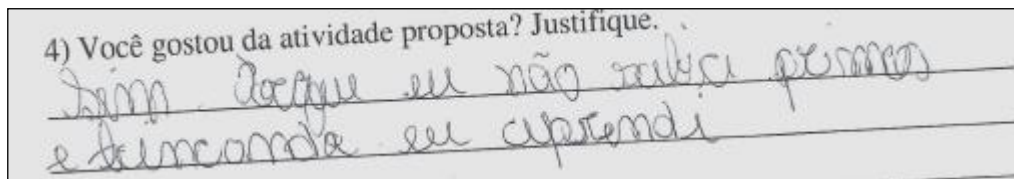 4) Você gostou da atividade proposta? Justifique.
Sim. Porque eu não sabia primos
e brincando eu aprendi